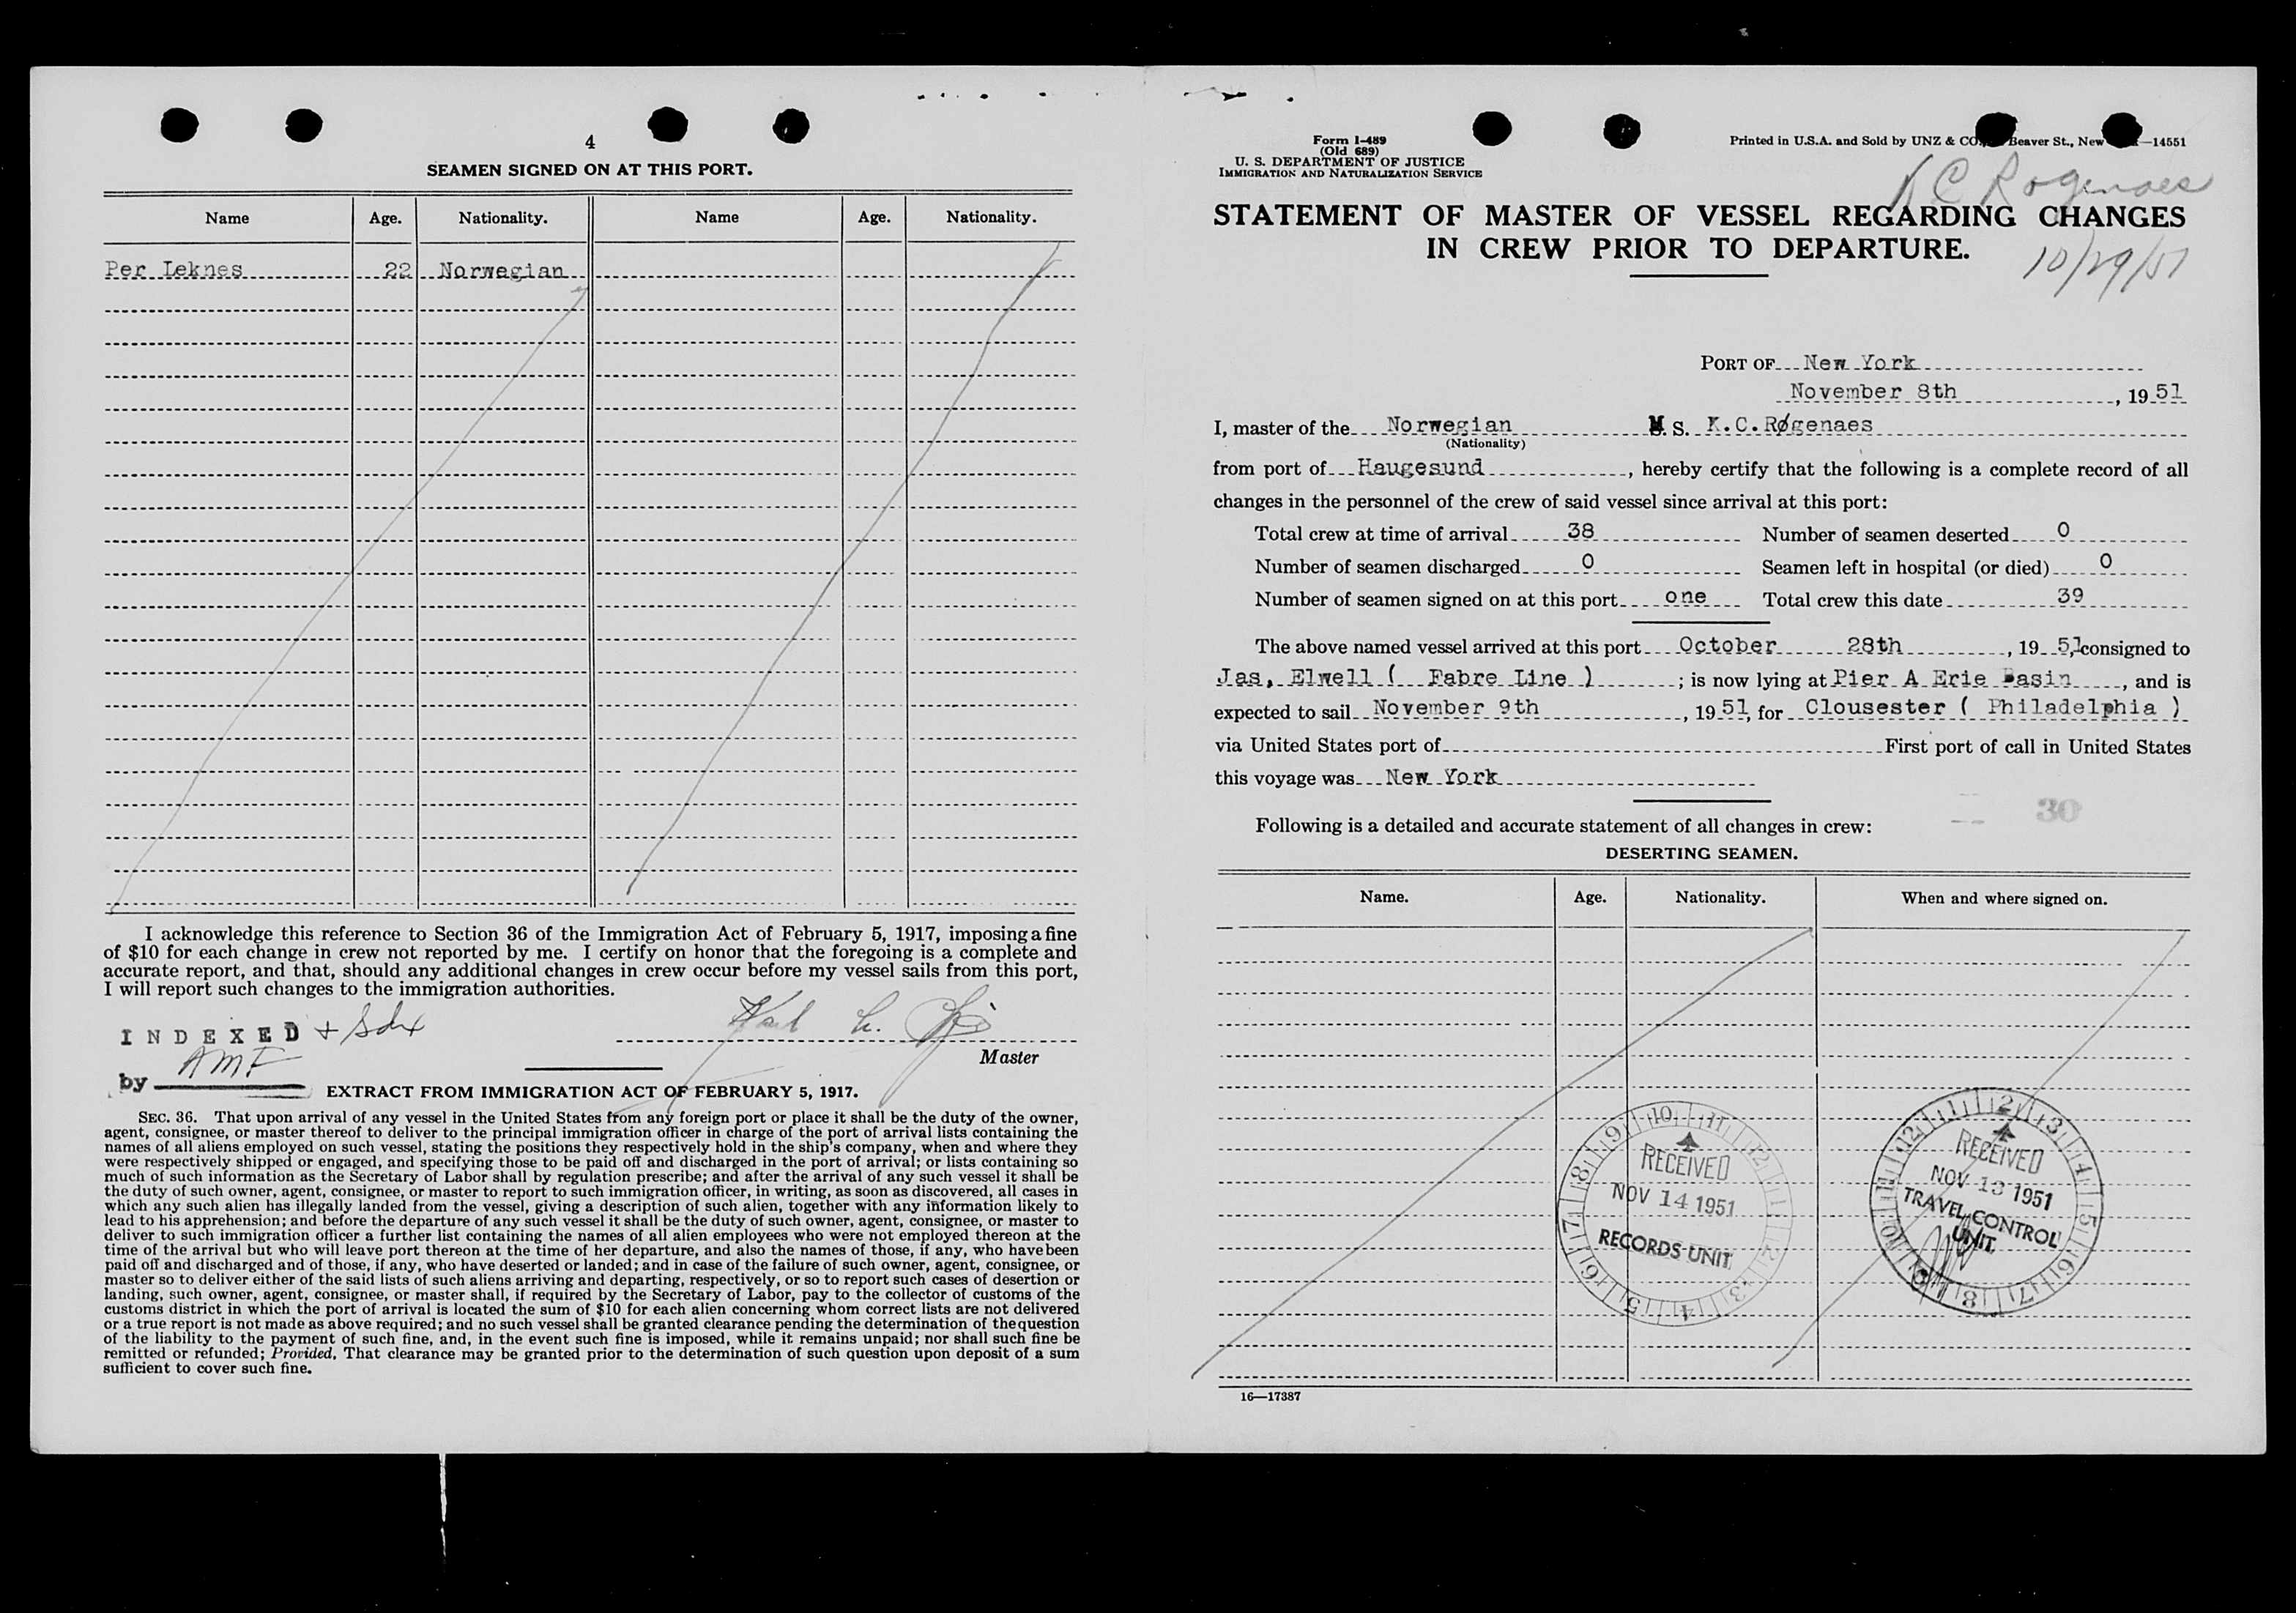 4
SEAMEN SIGNED ON AT THIS PORT.
Name Age. Nationality. Name Age. Nationality.
Per Leknes 22 Norwegian
I acknowledge this reference to Section 36 of the Immigration Act of February 5, 1917, imposing a fine
of $10 for each change in crew not reported by me. I certify on honor that the foregoing is a complete and
accurate report, and that, should any additional changes in crew occur before my vessel sails from this port,
I will report such changes to the immigration authorities.
INDEXED
Master
by AMF
EXTRACT FROM IMMIGRATION ACT OF FEBRUARY 5, 1917.
SEC. 36. That upon arrival of any vessel in the United States from any foreign port or place it shall be the duty of the owner,
agent, consignee, or master thereof to deliver to the principal immigration officer in charge of the port of arrival lists containing the
names of all aliens employed on such vessel, stating the positions they respectively hold in the ship's company, when and where they
were respectively shipped or engaged, and specifying those to be paid off and discharged in the port of arrival; or lists containing so
much of such information as the Secretary of Labor shall by regulation prescribe; and after the arrival of any such vessel it shall be
the duty of such owner, agent, consignee, or master to report to such immigration officer, in writing, as soon as discovered, all cases in
which any such alien has illegally landed from the vessel, giving a description of such alien, together with any information likely to
lead to his apprehension; and before the departure of any such vessel it shall be the duty of such owner, agent, consignee, or master to
deliver to such immigration officer a further list containing the names of all alien employees who were not employed thereon at the
time of the arrival but who will leave port thereon at the time of her departure, and also the names of those, if any, who have been
paid off and discharged and of those, if any, who have deserted or landed; and in case of the failure of such owner, agent, consignee, or
master so to deliver either of the said lists of such aliens arriving and departing, respectively, or so to report such cases of desertion or
landing, such owner, agent, consignee, or master shall, if required by the Secretary of Labor, pay to the collector of customs of the
customs district in which the port of arrival is located the sum of $10 for each alien concerning whom correct lists are not delivered
or a true report is not made as above required; and no such vessel shall be granted clearance pending the determination of the question
of the liability to the payment of such fine, and, in the event such fine is imposed, while it remains unpaid; nor shall such fine be
remitted or refunded; Provided, That clearance may be granted prior to the determination of such question upon deposit of a sum
sufficient to cover such fine.
Form I-489
(Old 689)
U. S. DEPARTMENT OF JUSTICE
IMMIGRATION AND NATURALIZATION SERVICE
Printed in U.S.A. and Sold by UNZ & CO Beaver St., New —14551
K C Rogenaes
STATEMENT OF MASTER OF VESSEL REGARDING CHANGES
IN CREW PRIOR TO DEPARTURE.
10/29/51
PORT OF New York
November 8th, 19 51
I, master of the Norwegian M. S. K.C.Røgenaes
(Nationality)
from port of Haugesund, hereby certify that the following is a complete record of all
changes in the personnel of the crew of said vessel since arrival at this port:
Total crew at time of arrival 38 Number of seamen deserted 0
Number of seamen discharged 0 Seamen left in hospital (or died) 0
Number of seamen signed on at this port one Total crew this date 39
The above named vessel arrived at this port October 28th, 19 51, consigned to
Jas, Elwell ( Fabre Line ); is now lying at Pier A Erie Basin, and is
expected to sail November 9th, 19 51, for Clousester ( Philadelphia )
via United States port of First port of call in United States
this voyage was New York
30
Following is a detailed and accurate statement of all changes in crew:
DESERTING SEAMEN.
Name. Age. Nationality. When and where signed on.
RECEIVED
NOV 14 1951
RECORDS UNIT
RECEIVED
NOV 13 1951
TRAVEL CONTROL
UNIT
16—17387